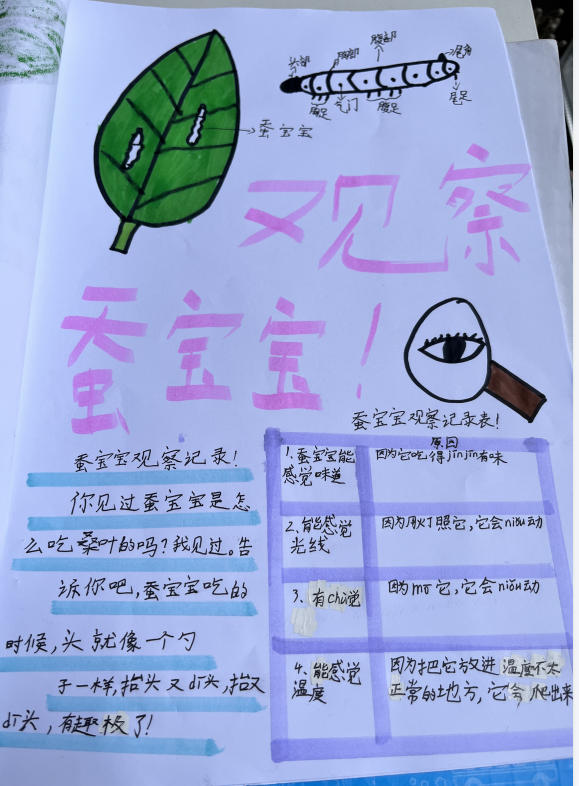 头部 胸部 腹部 尾角
胸足 气门 腹足 尾足
蚕宝宝
观察
蚕宝宝!
蚕宝宝观察记录表!
蚕宝宝观察记录!
你见过蚕宝宝是怎
么吃桑叶的吗?我见过。告
诉你吧,蚕宝宝吃的
时候,头就像一个勺
子一样,抬头又dī头,抬又
dī头,有趣极了!
原因
1.蚕宝宝能
感觉味道
因为它吃得jīnjīn有味
2.能感觉
光线
因为用灯照它,它会niǔ动
3、有chù觉
因为mō它,它会niǔ动
4、能感觉
温度
因为把它放进温度不太
正常的地方,它会爬出来